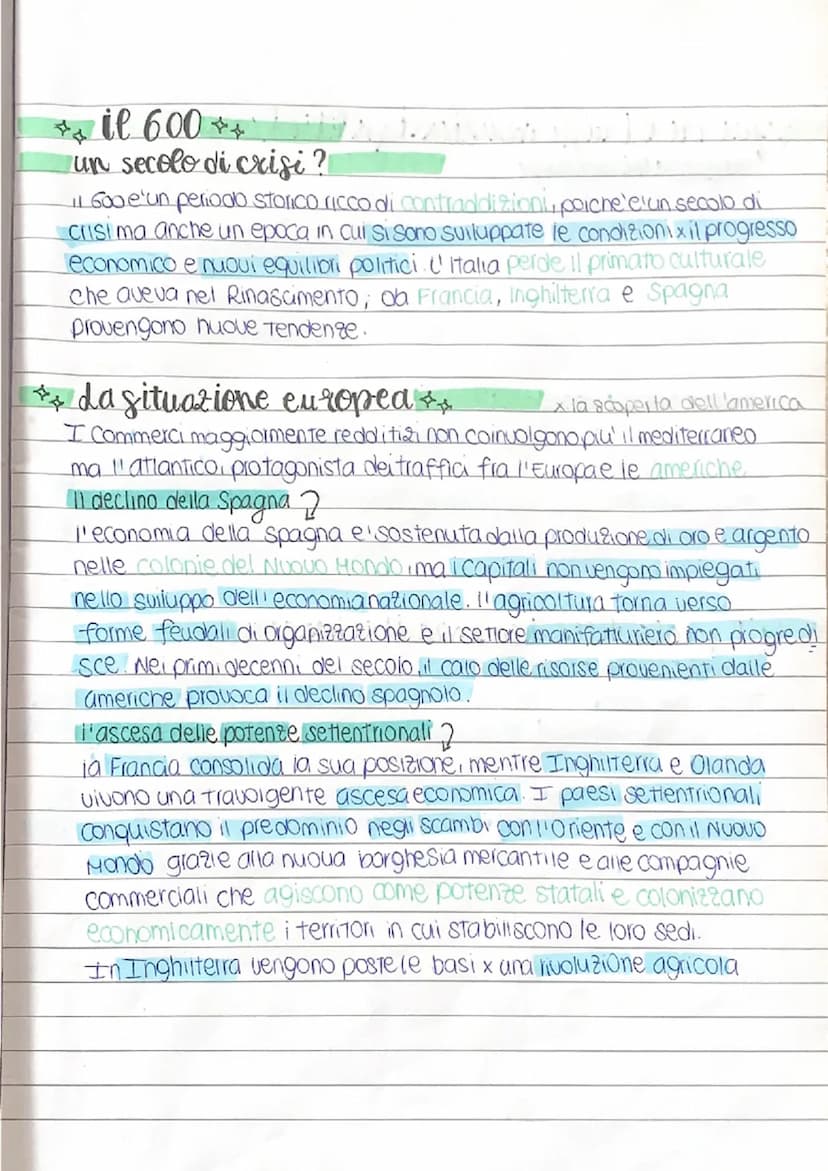 il 600
un secolo di crisi?
il 600 e' un periodo storico ricco di contraddizioni, poiche' e' un secolo di
crisi ma anche un epoca in cui si sono sviluppate le condizioni x il progresso
economico e nuovi equilibri politici. L'Italia perde il primato culturale
che aveva nel Rinascimento; da Francia, Inghilterra e Spagna
provengono nuove tendenze.
la situazione europea
x la scoperta dell'america
I commerci maggiormente redditizi non coinvolgono piu' il mediterraneo
ma l'atlantico, protagonista dei traffici fra l'Europa e le americhe
Il declino della Spagna
l'economia della spagna e' sostenuta dalla produzione di oro e argento
nelle colonie del Nuovo Mondo, ma i capitali non vengono impiegati
nello sviluppo dell'economia nazionale. l'agricoltura torna verso
forme feudali di organizzazione e il settore manifatturiero non progredi
sce. Nei primi decenni del secolo il calo delle risorse provenienti dalle
americhe provoca il declino spagnolo.
l'ascesa delle potenze settentrionali
la Francia consolida la sua posizione, mentre Inghilterra e Olanda
vivono una travolgente ascesa economica. I paesi settentrionali
conquistano il predominio negli scambi con l'Oriente e con il Nuovo
Mondo grazie alla nuova borghesia mercantile e alle compagnie
commerciali che agiscono come potenze statali e colonizzano
economicamente i territori in cui stabiliscono le loro sedi.
In Inghilterra vengono poste le basi x una rivoluzione agricola